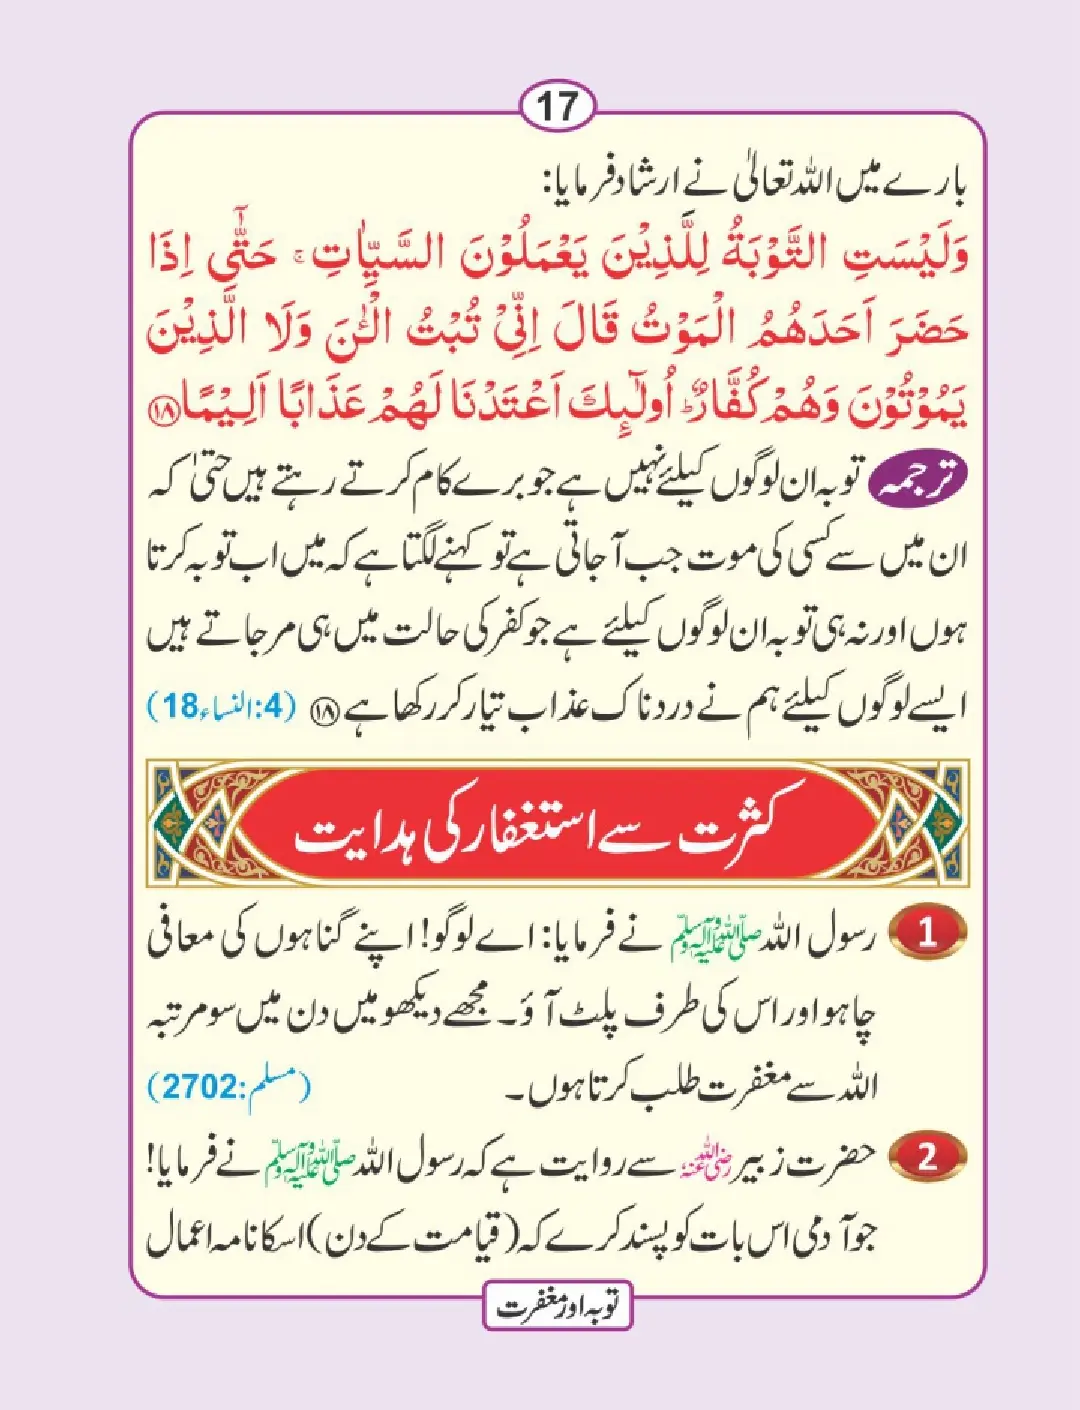 17
بارے میں اللہ تعالیٰ نے ارشاد فرمایا:
وَلَيْسَتِ التَّوْبَةُ لِلَّذِيْنَ يَعْمَلُوْنَ السَّيِّاٰتِ ۚ حَتّٰٓى اِذَا
حَضَرَ اَحَدَهُمُ الْمَوْتُ قَالَ اِنِّىْ تُبْتُ الْـٰٔنَ وَلَا الَّذِيْنَ
يَمُوْتُوْنَ وَهُمْ كُفَّارٌ ؕ اُولٰٓئِكَ اَعْتَدْنَا لَهُمْ عَذَابًا اَلِيْمًا ۝۱۸
ترجمہ توبہ ان لوگوں کیلئے نہیں ہے جو برے کام کرتے رہتے ہیں حتیٰ کہ
ان میں سے کسی کی موت جب آجاتی ہے تو کہنے لگتا ہے کہ میں اب توبہ کرتا
ہوں اور نہ ہی توبہ ان لوگوں کیلئے ہے جو کفر کی حالت میں ہی مر جاتے ہیں
ایسے لوگوں کیلئے ہم نے دردناک عذاب تیار کر رکھا ہے ۝۱۸ (4:النساء18)
کثرت سے استغفار کی ہدایت
1 رسول اللہ ﷺ نے فرمایا: اے لوگو! اپنے گناہوں کی معافی
چاہو اور اس کی طرف پلٹ آؤ۔ مجھے دیکھو میں دن میں سو مرتبہ
اللہ سے مغفرت طلب کرتا ہوں۔ (مسلم:2702)
2 حضرت زبیر رضی اللہ عنہ سے روایت ہے کہ رسول اللہ ﷺ نے فرمایا!
جو آدمی اس بات کو پسند کرے کہ (قیامت کے دن) اسکا نامہ اعمال
توبہ اور مغفرت